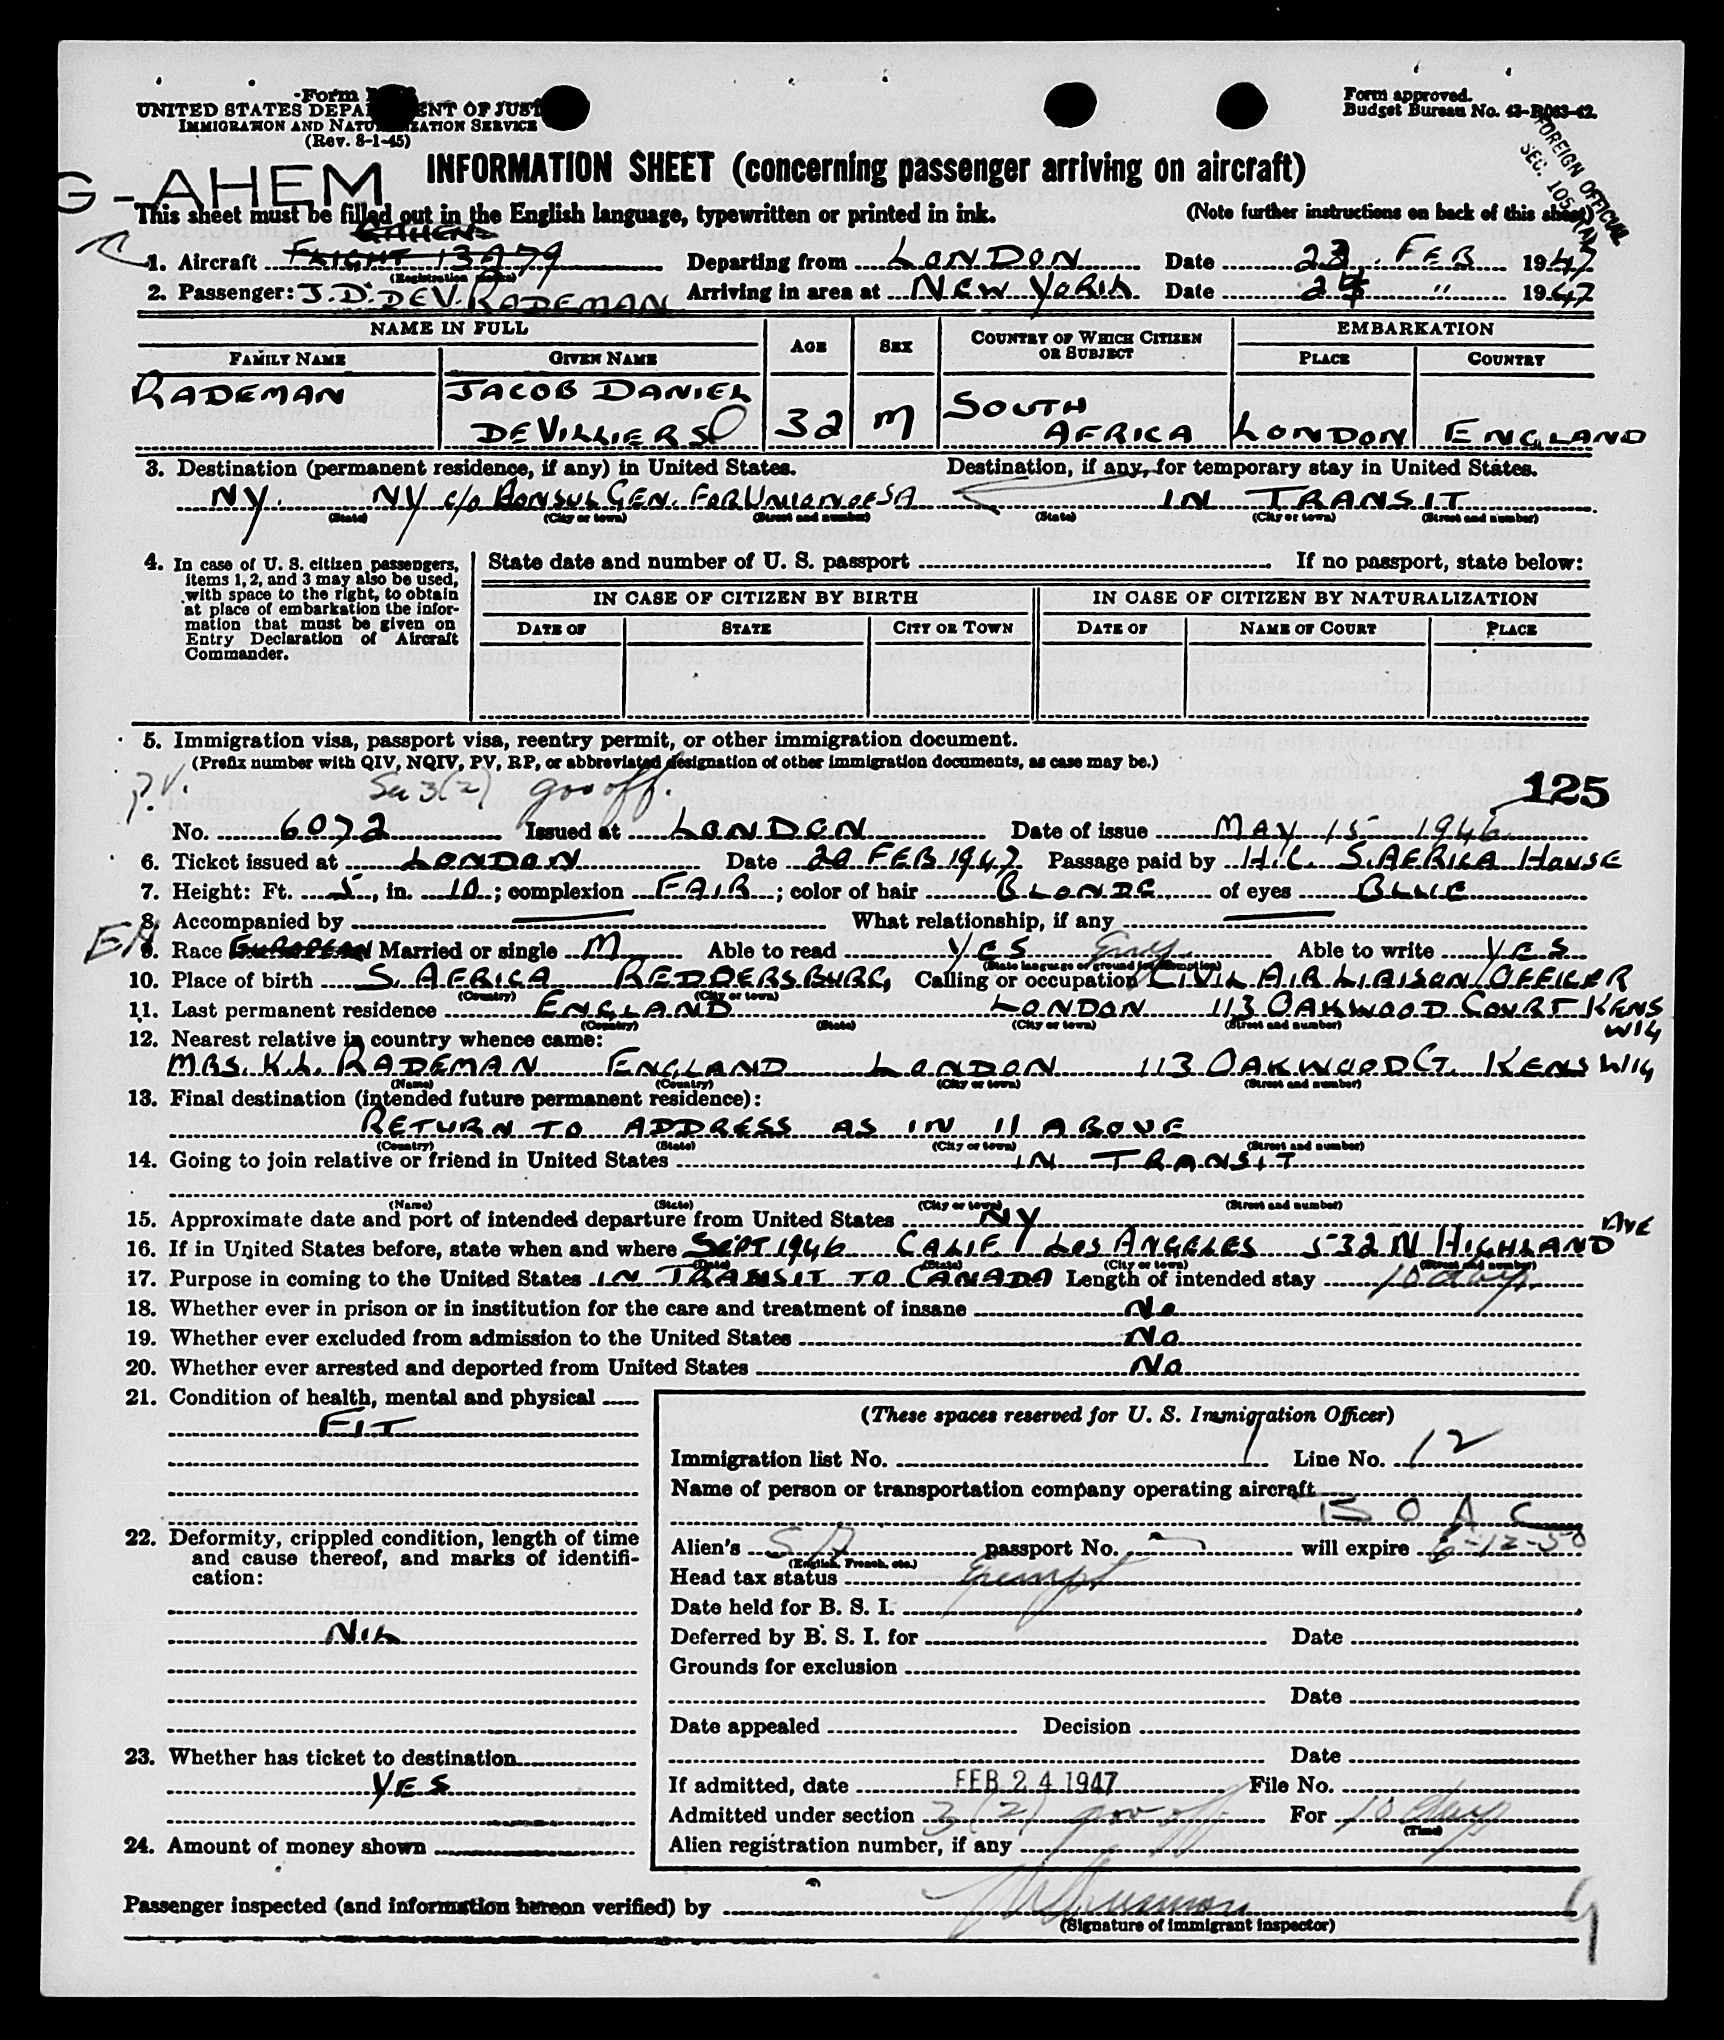 Form
UNITED STATES DEPARTMENT OF JUSTICE
IMMIGRATION AND NATURALIZATION SERVICE
(Rev. 8-1-45)
Form approved.
Budget Bureau No. 43-R063-42.
FOREIGN OFFICIAL
SEC. 105
G-AHEM
INFORMATION SHEET (concerning passenger arriving on aircraft)
This sheet must be filled out in the English language, typewritten or printed in ink. (Note further instructions on back of this sheet)
1. Aircraft FRIGHT 13979 Departing from LONDON Date 23. FEB 1947
(Registration marks)
2. Passenger: J.D. DEV. RADEMAN Arriving in area at NEW YORK Date 24 " 1947
NAME IN FULL AGE SEX COUNTRY OF WHICH CITIZEN OR SUBJECT EMBARKATION
FAMILY NAME GIVEN NAME PLACE COUNTRY
RADEMAN JACOB DANIEL DEVILLIERS 32 M SOUTH AFRICA LONDON ENGLAND
3. Destination (permanent residence, if any) in United States. Destination, if any, for temporary stay in United States.
NY. NY c/o CONSUL GEN. FOR UNION OF SA IN TRANSIT
(State) (City or town) (Street and number) (State) (City or town) (Street and number)
4. In case of U. S. citizen passengers, items 1, 2, and 3 may also be used, with space to the right, to obtain at place of embarkation the information that must be given on Entry Declaration of Aircraft Commander.
State date and number of U. S. passport If no passport, state below:
IN CASE OF CITIZEN BY BIRTH IN CASE OF CITIZEN BY NATURALIZATION
DATE OF STATE CITY OR TOWN DATE OF NAME OF COURT PLACE
5. Immigration visa, passport visa, reentry permit, or other immigration document.
(Prefix number with QIV, NQIV, PV, RP, or abbreviated designation of other immigration documents, as case may be.)
P.V. Sec 3(2) gov off. 125
No. 6072 Issued at LONDON Date of issue MAY 15 1946
6. Ticket issued at LONDON Date 20 FEB 1947 Passage paid by H.C. S. AFRICA HOUSE
7. Height: Ft. 5, in. 10; complexion FAIR; color of hair BLONDE of eyes BLUE
8. Accompanied by What relationship, if any
EN
9. Race EUROPEAN Married or single M Able to read YES Eng Able to write YES
(State language or ground for exemption)
10. Place of birth S. AFRICA REDDERSBURG, Calling or occupation CIVIL AIR LIAISON OFFICER
(Country) (City or town)
11. Last permanent residence ENGLAND LONDON 113 OAKWOOD COURT KENS W14
(Country) (State) (City or town) (Street and number)
12. Nearest relative in country whence came:
MRS. K.L. RADEMAN ENGLAND LONDON 113 OAKWOOD CT. KENS W14
(Name) (Country) (City or town) (Street and number)
13. Final destination (intended future permanent residence):
RETURN TO ADDRESS AS IN 11 ABOVE
(Country) (State) (City or town) (Street and number)
14. Going to join relative or friend in United States IN TRANSIT
(Name) (State) (City or town) (Street and number)
15. Approximate date and port of intended departure from United States NY
16. If in United States before, state when and where SEPT 1946 CALIF LOS ANGELES 532 N HIGHLAND AVE
(Date) (State) (City or town) (Street and number)
17. Purpose in coming to the United States IN TRANSIT TO CANADA Length of intended stay 10 days.
18. Whether ever in prison or in institution for the care and treatment of insane No
19. Whether ever excluded from admission to the United States No
20. Whether ever arrested and deported from United States No
21. Condition of health, mental and physical
FIT
22. Deformity, crippled condition, length of time and cause thereof, and marks of identification:
NIL
23. Whether has ticket to destination
YES
24. Amount of money shown
(These spaces reserved for U. S. Immigration Officer)
Immigration list No. 1 Line No. 12
Name of person or transportation company operating aircraft
B O A C
Alien's SA passport No. will expire 6-12-50
(English, French, etc.)
Head tax status Exempt
Date held for B. S. I.
Deferred by B. S. I. for Date
Grounds for exclusion
Date
Date appealed Decision
Date
If admitted, date FEB 24 1947 File No.
Admitted under section 3(2) gov off. For 10 days
(Time)
Alien registration number, if any
Passenger inspected (and information hereon verified) by
(Signature of immigrant inspector)
9